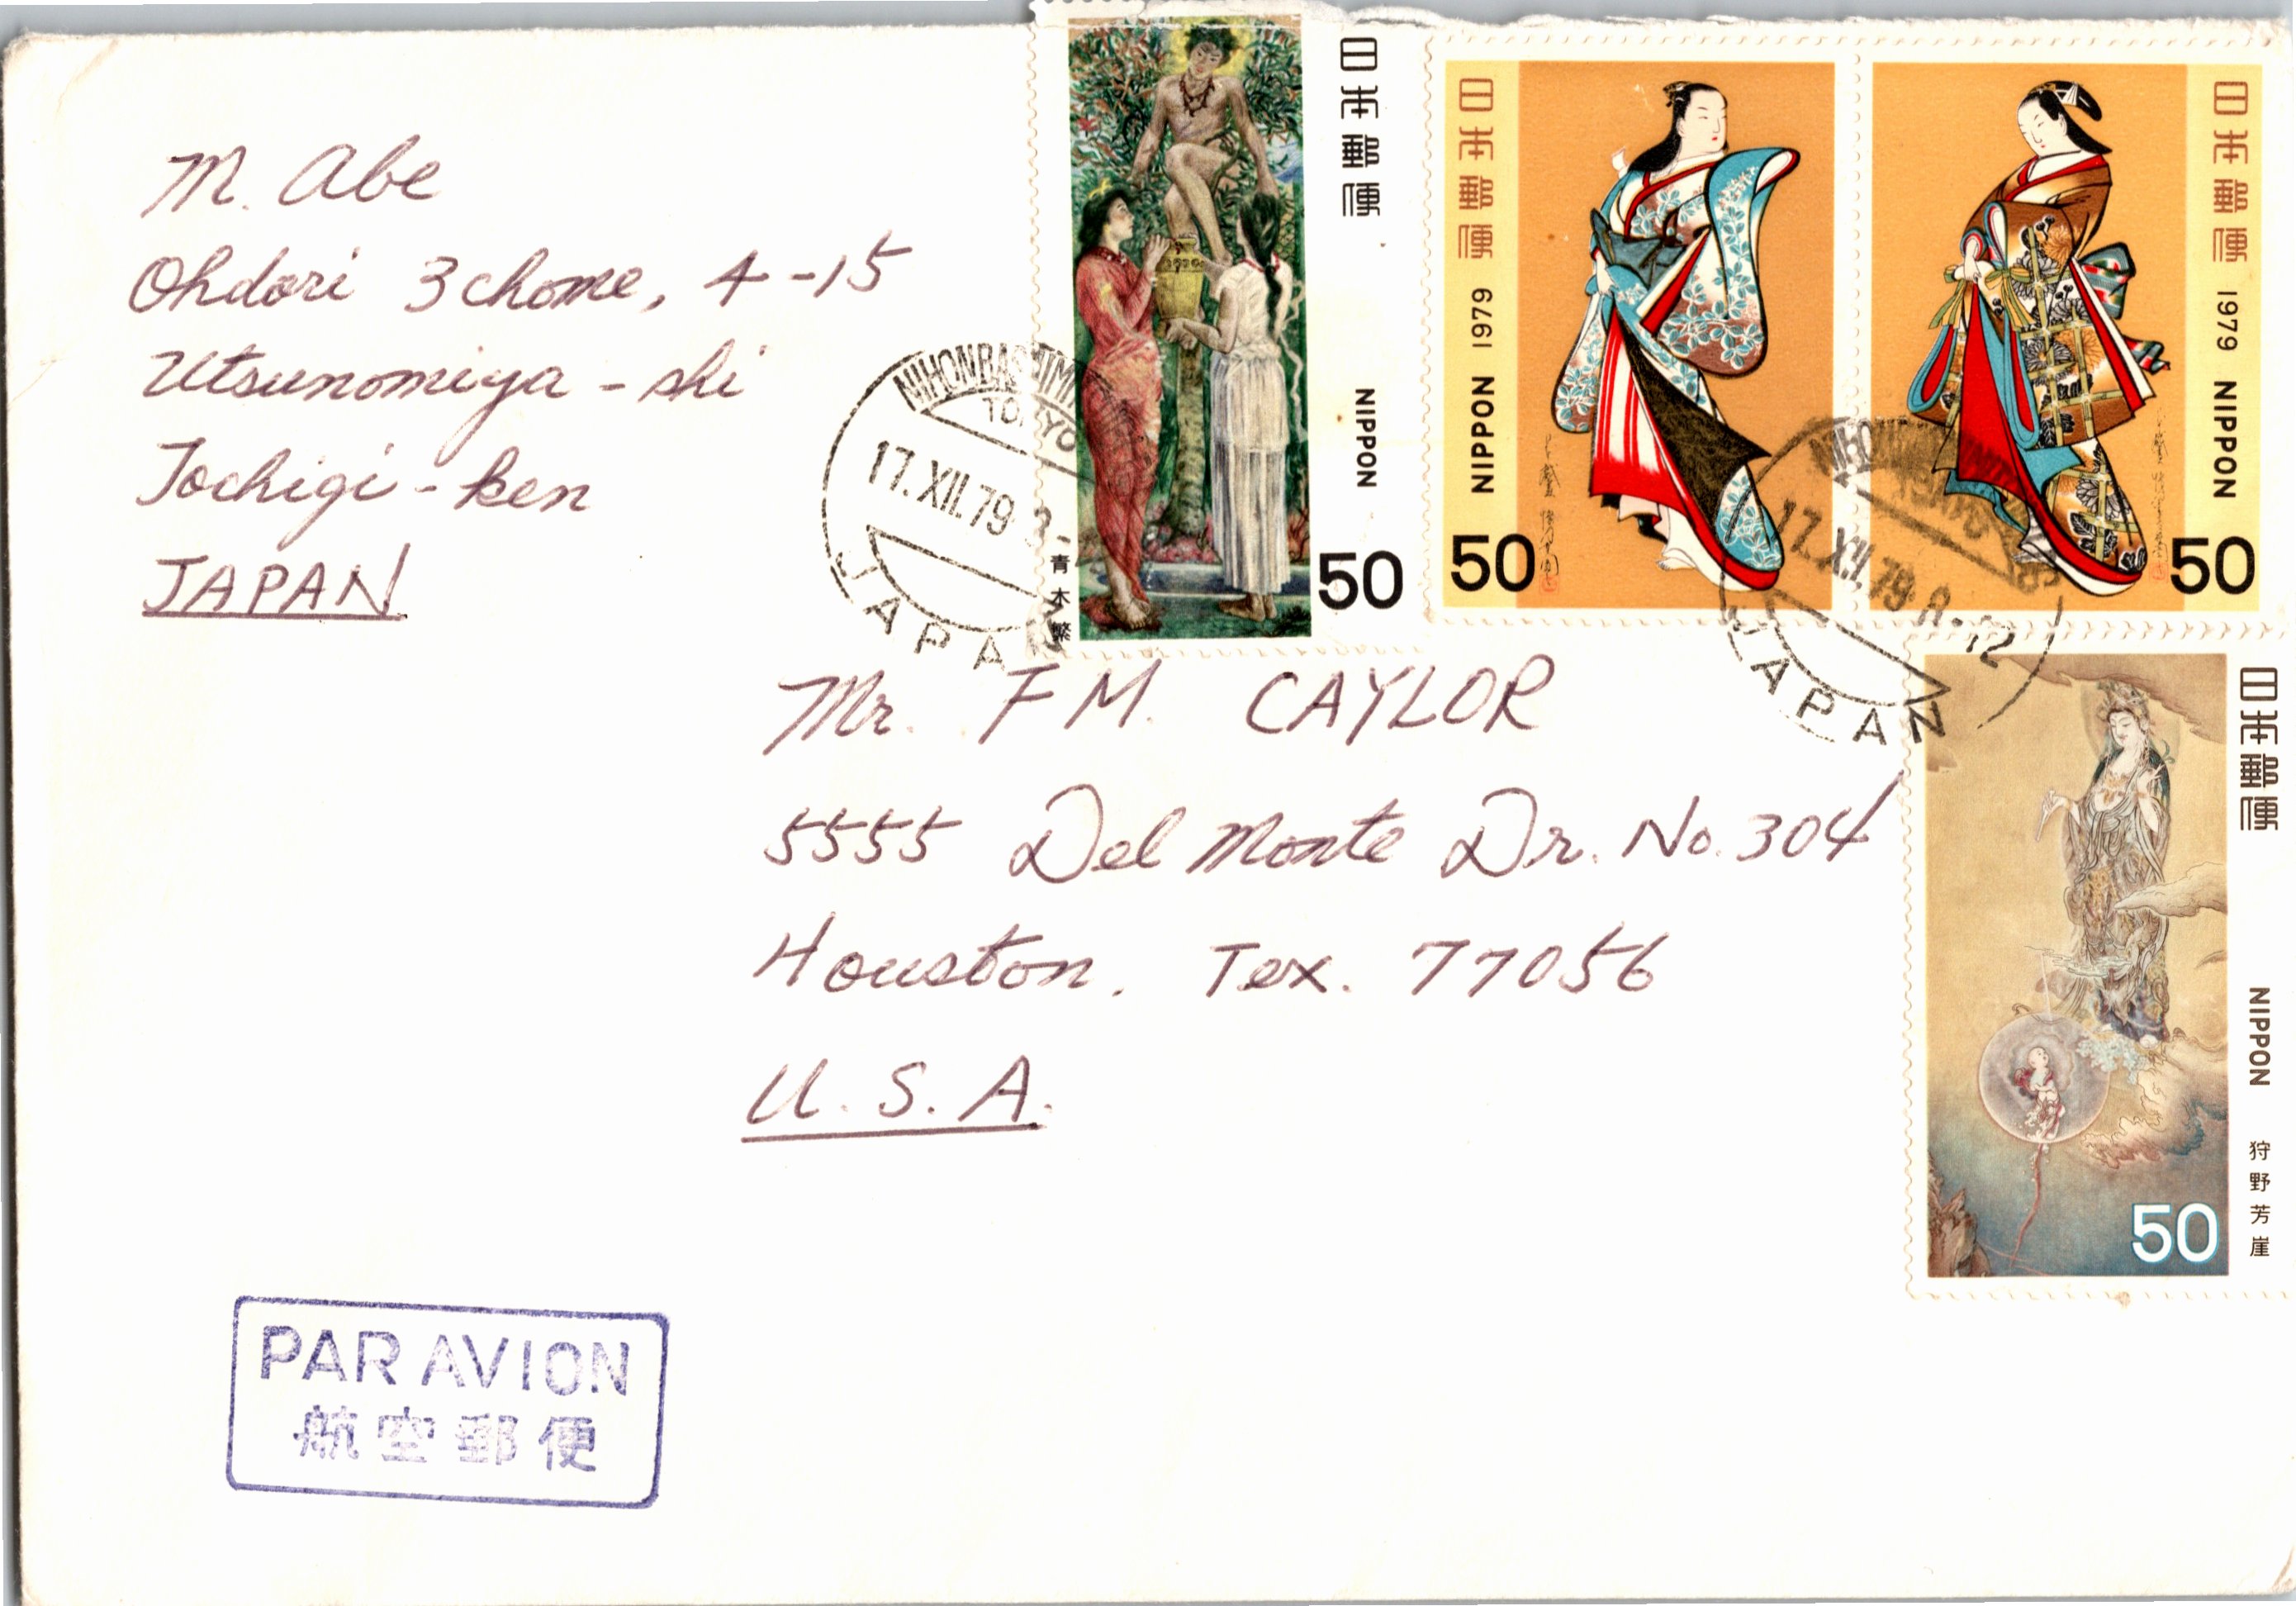 M. Abe
Ohdori 3 chome, 4-15
Utsunomiya-shi
Tochigi-ken
JAPAN
日本郵便
NIPPON
50
青木繁
日本郵便
NIPPON 1979
50
日本郵便
1979 NIPPON
50
TOKYO
17.XII.79
JAPAN
17.XII.79
JAPAN
Mr. F M. CAYLOR
5555 Del Monte Dr. No. 304
Houston, Tex. 77056
U.S.A.
日本郵便
NIPPON
狩野芳崖
50
PAR AVION
航空郵便